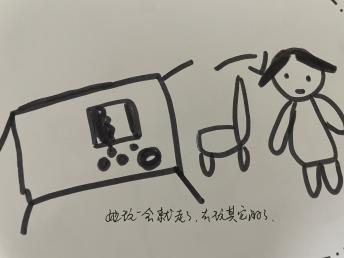 她玩一会就走了，在玩其它的了.